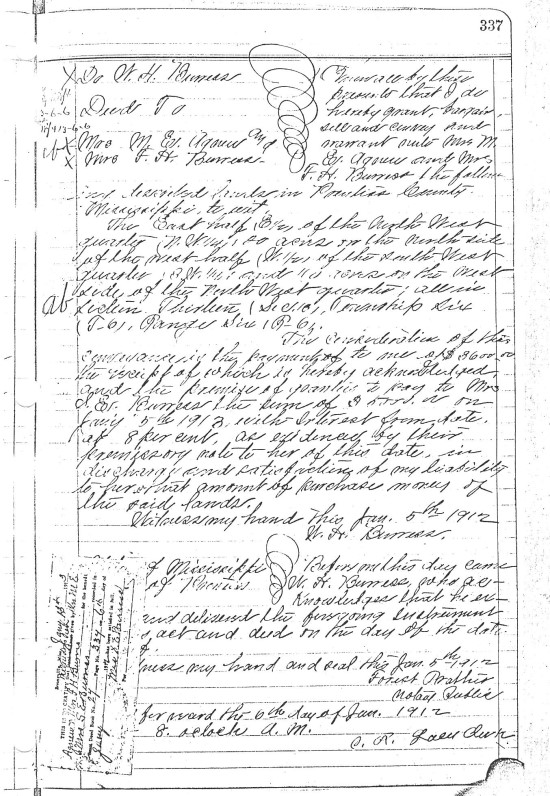 337
W. H. Burress
Deed To
Mrs M. Ed. Agnew and
Mrs F. H. Burress.
Know all by these
presents that I do
hereby grant, bargain,
sell and convey and
warrant unto Mrs M.
Ed. Agnew and Mrs
F. H. Burress the follow
ing described lands in Pontotoc County
Mississippi, to wit,
The East half (E½) of the North West
quarter (N.W¼) 60 acres on the North side
of the West half (W.½) of the South West
quarter (S.W.¼) and 110 acres on the West
side of the North West quarter; all in
Section Thirteen (Sec. 13), Township Six
(T-6), Range Six (R-6).
The consideration of this
conveyance is the payment to me of $3600.00
the receipt of which is hereby acknowledged,
and the promise of grantees to pay to Mrs
Ed. Burress the sum of on
Jany 5th 1913, with interest from date,
at 8 per cent, as evidenced by their
promissory note to her of this date, in
discharge and satisfaction of my liability
to her that amount of purchase money of
the said lands.
Witness my hand this Jan. 5th 1912
W. H. Burress.
of Mississippi
of Pontotoc
Before me this day came
W. H. Burress, who ac-
knowledges that he
and delivered the foregoing Instrument
act and deed on the day of the date
my hand and seal this Jan. 5th 1912
Forest Prather
Notary Public
for record the 6th day of Jan. 1912
8. oclock A. M.
Clerk
THIS IS TO CERTIFY